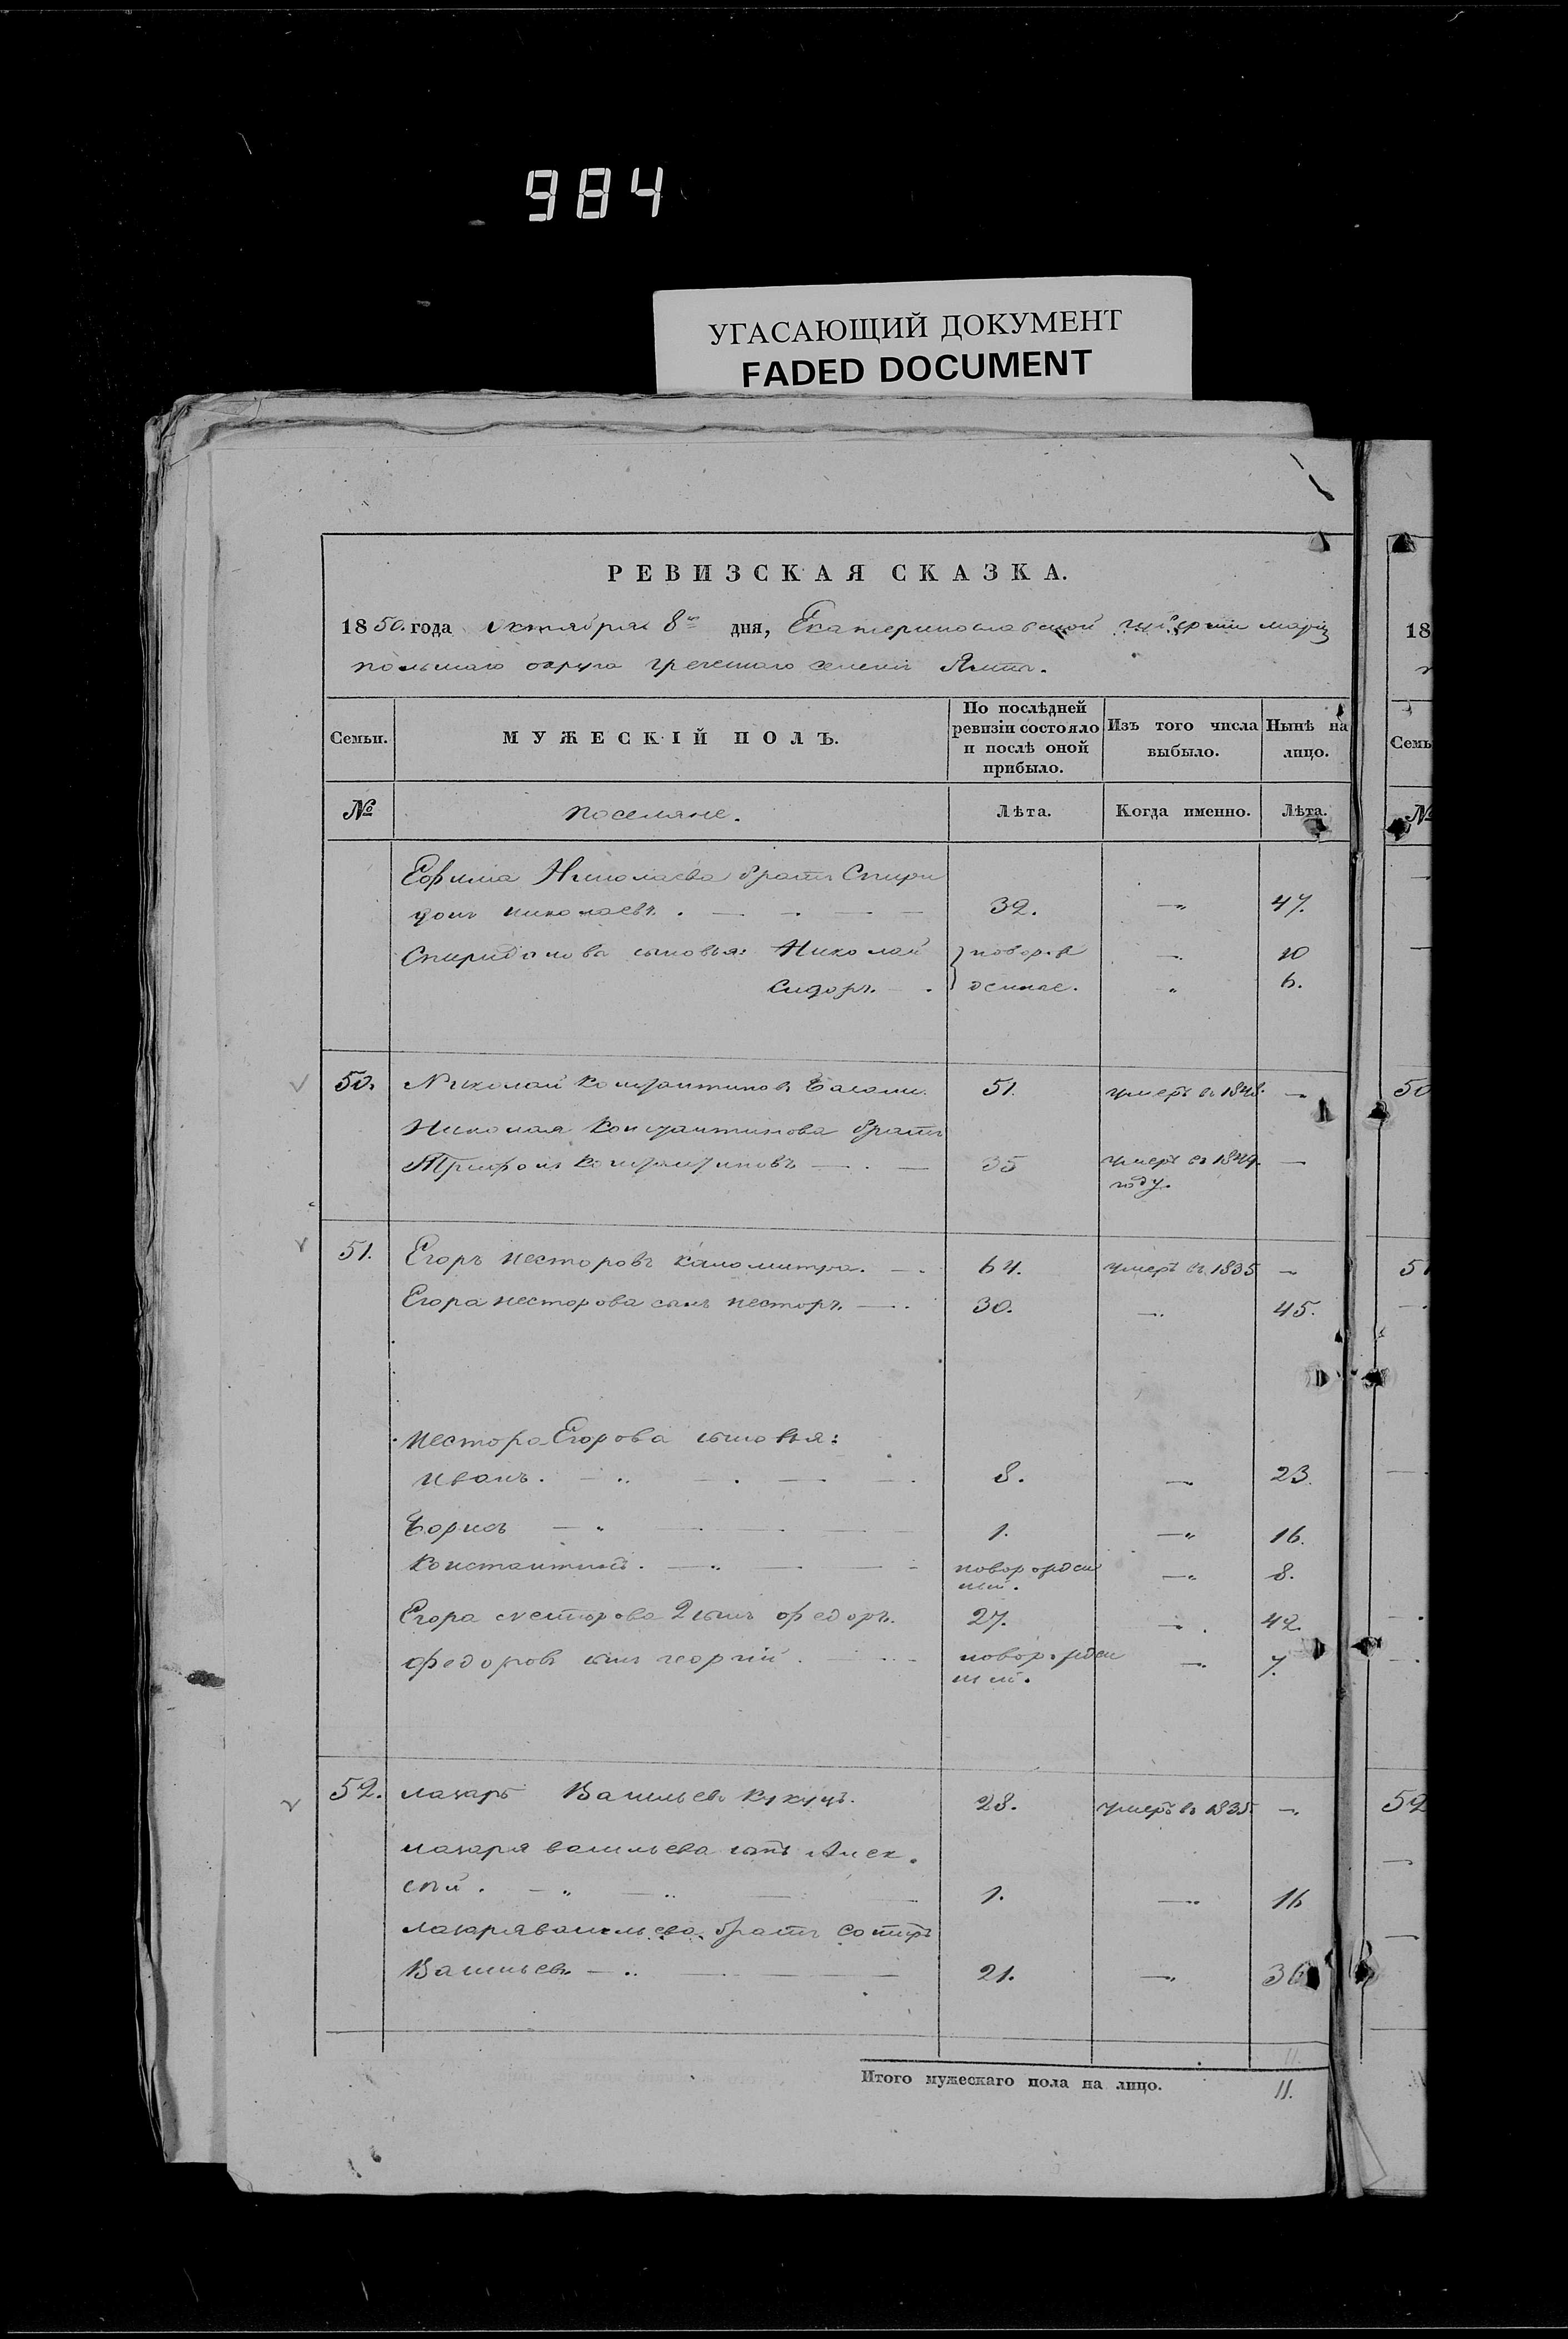 984
УГАСАЮЩИЙ ДОКУМЕНТ
FADED DOCUMENT
РЕВИЗСКАЯ СКАЗКА.
1850. года Октября 8го дня, Екатеринославской губернiи мариу
польскаго округа греческаго селенiя Ялты.
Семьи. МУЖЕСКІЙ ПОЛЪ. По послѣдней ревизіи состояло и послѣ оной прибыло. Изъ того числа выбыло. Нынѣ на лицо.
№ поселяне. Лѣта. Когда именно. Лѣта.
Ефима Николаева братъ Спири
донъ николаевъ. 32. — 47.
Спиридонова сыновья: Николай новорож — 10
Сидоръ. денные. „ 6.
50. Николай Константиновъ 51. умеръ въ 1848. —
Николая Константинова братъ
Трифонъ Константиновъ — 35 умеръ въ 1849. —
году.
51. Егоръ несторовъ каломитра. — 64. умеръ въ 1835 —
Егора несторова сынъ несторъ. — 30. — 45.
нестора Егорова сыновья:
иванъ. 8. — 23.
Борисъ 1. — 16.
константинъ. новорожден — 8.
ный.
Егора несторова 2 сынъ федоръ. 27. — 42.
федоровъ сынъ георгiй. новорожден — 7.
ный.
52. лазарь Васильевъ 28. умеръ въ 1835. —
лазаря васильева сынъ Алек
сѣй. 1. — 16
лазаря васильева братъ Сотиръ
Васильевъ — 21. — 36
11.
Итого мужескаго пола на лицо. 11.
18
Семь
№
50
51
52